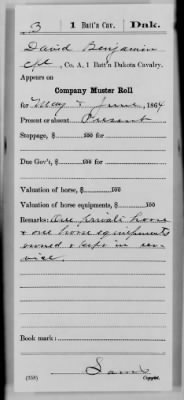 3 | 1 Batt'n Cav. | Dak.
David Benjamin
Cpl, Co. A, 1 Batt'n Dakota Cavalry.
Appears on
Company Muster Roll
for May & June, 1864
Present or absent Present
Stoppage, $ 100 for
Due Gov't, $ 100 for
Valuation of horse, $ 100
Valuation of horse equipments, $ 100
Remarks: One private horse
& one horse equipments
owned & kept in ser-
vice.
Book mark:
(358)
Copyist.